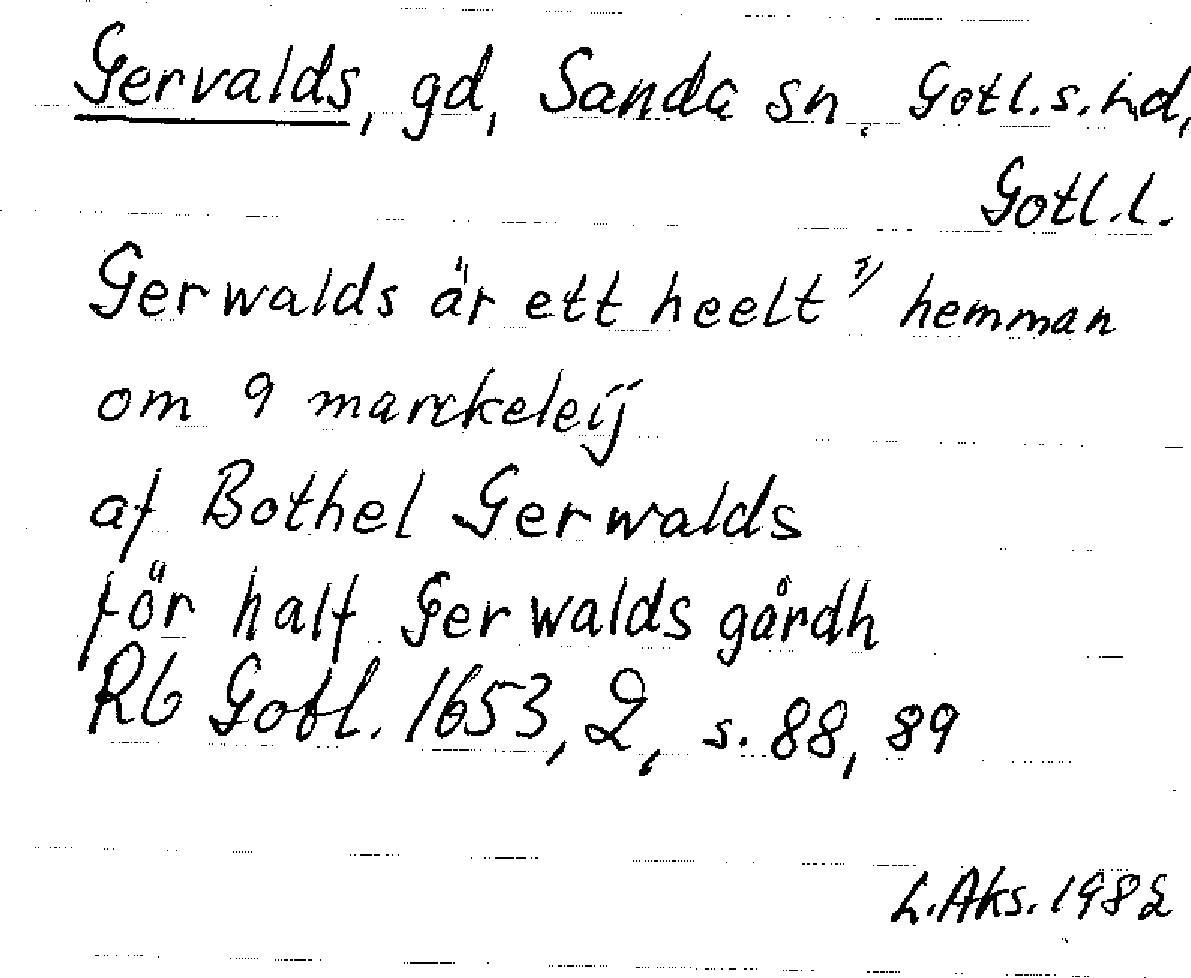 Gervalds, gd, Sanda sn, Gotl.s.hd,
Gotl.l.
Gerwalds är ett heelt hemman
om 9 marckeleij
af Bothel Gerwalds
för half Gerwalds gårdh
Rb Gotl. 1653, 2, s. 88, 89
L.Aks. 1982